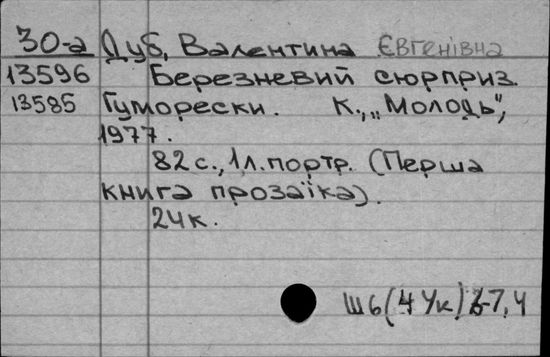 30-а Дуб, Валентина Євгенівна
13596 Березневий сюрприз.
13585 Гуморески. К., „Молодь",
1977.
82 с., 1 л. портр. (Перша
книга прозаїка).
24к.
Ш6(4Ук)